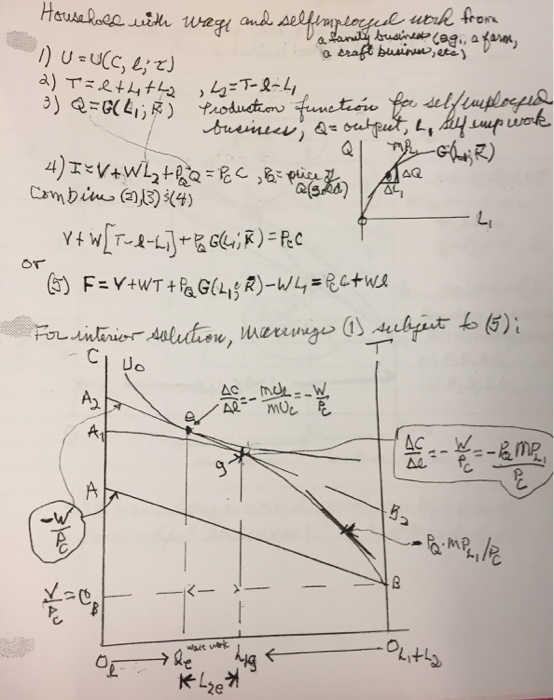 Household with wage and selfemployed work from
a family business (e.g., a farm,
a craft business, etc)
1) U = U(C, l; τ)
2) T = l + L₁ + L₂ , L₂ = T - l - L₁
3) Q = G(L₁; K̄) Production function for selfemployed
business, Q = output, L₁ self emp work
4) I = V + WL₂ + P_Q Q = P_C C , P_Q = price of
Q (sold)
Combine (2), (3) & (4)
Q
MP_L
G(L₁; K̄)
ΔQ
ΔL₁
L₁
V + W[T - l - L₁] + P_Q G(L₁; K̄) = P_C C
or
(5) F = V + WT + P_Q G(L₁; K̄) - WL₁ = P_C C + Wl
For interior solution, maximize (1) subject to (5):
C
U₀
T
A₂
e
ΔC/Δl = - MU_l/MU_C = - W/P_C
A₁
g
ΔC/Δl = - W/P_C = - P_Q MP_L₁/P_C
A
B₂
-W/P_C
- P_Q · MP_L₁/P_C
B
V/P_C = C_B
O_l
l_e
wage work
L₁g
O_L₁+L₂
L₂e